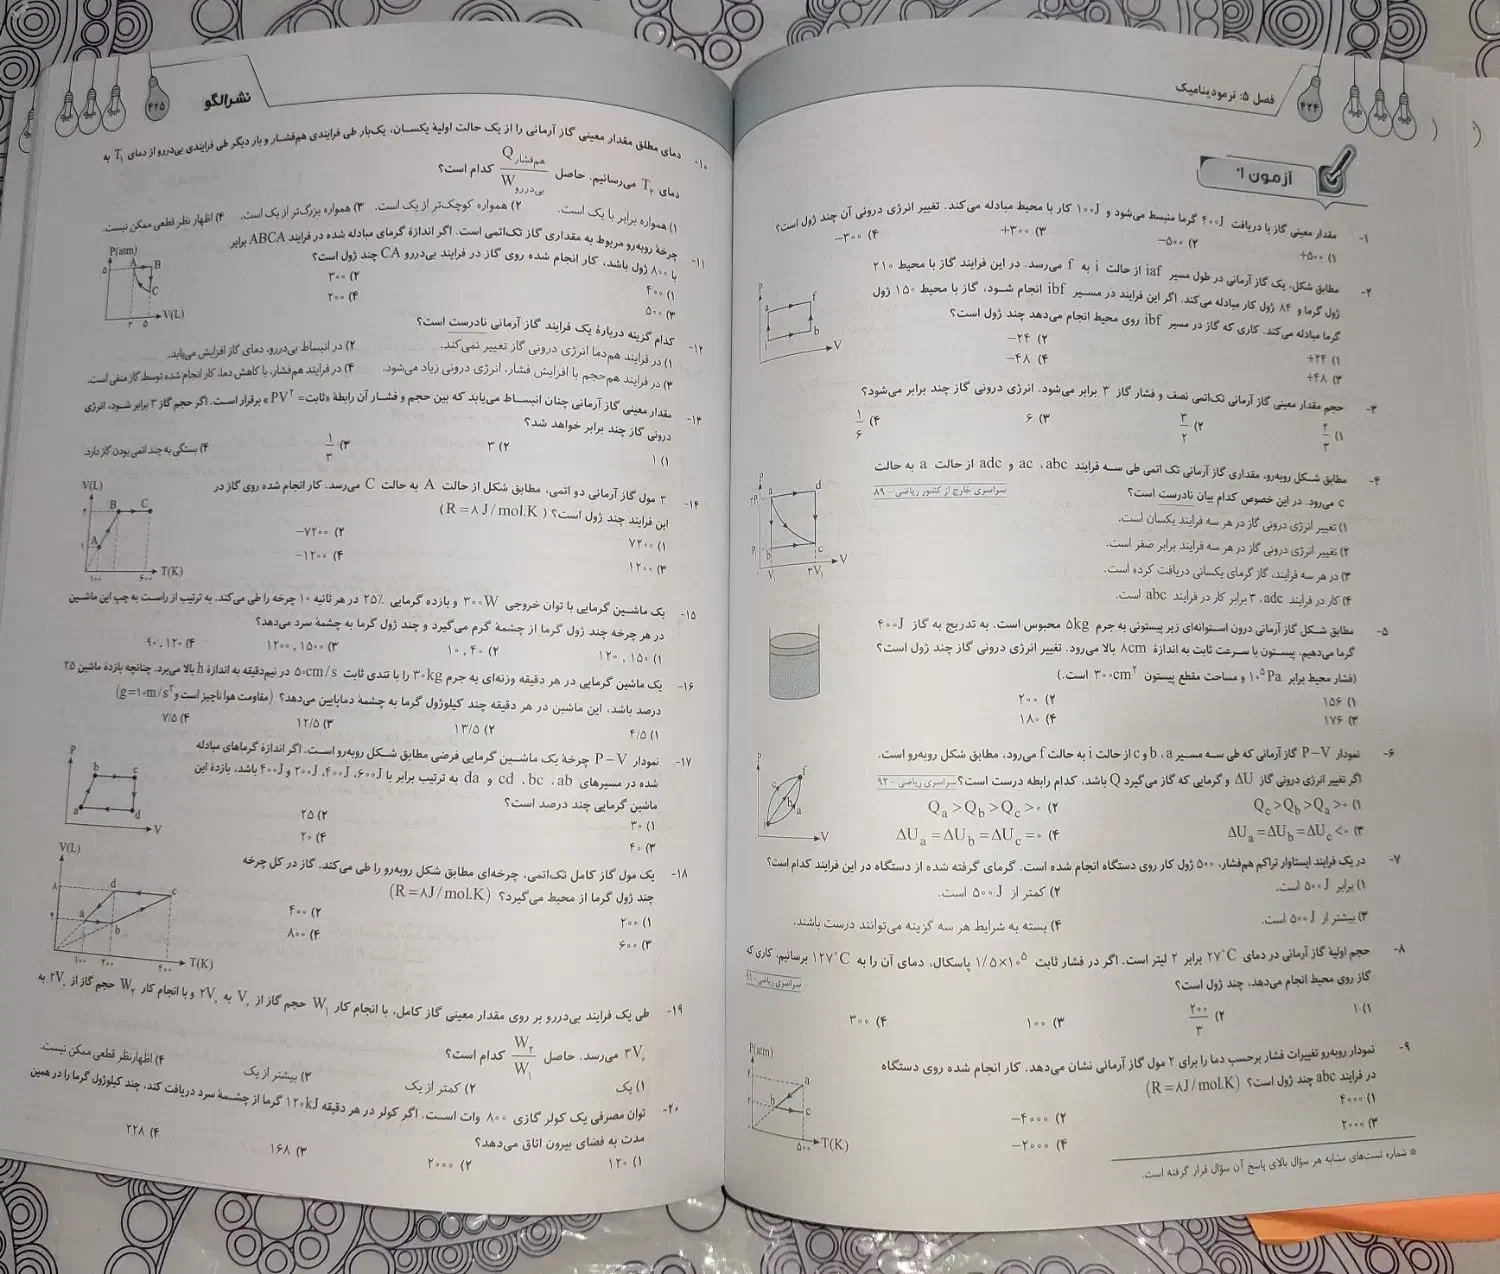 فصل ۵: ترمودینامیک
۴۲۴
آزمون ۱*
۱- مقدار معینی گاز با دریافت ۴۰۰J گرما منبسط می‌شود و ۱۰۰J کار با محیط مبادله می‌کند. تغییر انرژی درونی آن چند ژول است؟
۱) +۵۰۰ ۲) -۵۰۰ ۳) +۳۰۰ ۴) -۳۰۰
۲- مطابق شکل، یک گاز آرمانی در طول مسیر iaf از حالت i به f می‌رسد. در این فرایند گاز با محیط ۲۱۰
ژول گرما و ۸۴ ژول کار مبادله می‌کند. اگر این فرایند در مسیر ibf انجام شود، گاز با محیط ۱۵۰ ژول
گرما مبادله می‌کند. کاری که گاز در مسیر ibf روی محیط انجام می‌دهد چند ژول است؟
۱) +۲۴ ۲) -۲۴
۳) +۴۸ ۴) -۴۸
P a f i b V
۳- حجم مقدار معینی گاز آرمانی تک‌اتمی نصف و فشار گاز ۳ برابر می‌شود. انرژی درونی گاز چند برابر می‌شود؟
۱) ۲/۳ ۲) ۳/۲ ۳) ۶ ۴) ۱/۶
۴- مطابق شکل روبه‌رو، مقداری گاز آرمانی تک اتمی طی سه فرایند ac ،abc و adc از حالت a به حالت
c می‌رود. در این خصوص کدام بیان نادرست است؟ سراسری خارج از کشور ریاضی - ۸۹
۱) تغییر انرژی درونی گاز در هر سه فرایند یکسان است.
۲) تغییر انرژی درونی گاز در هر سه فرایند برابر صفر است.
۳) در هر سه فرایند، گاز گرمای یکسانی دریافت کرده است.
۴) کار در فرایند adc، ۳ برابر کار در فرایند abc است.
P a d b c V₁ ۳V₁ V
۵- مطابق شکل گاز آرمانی درون استوانه‌ای زیر پیستونی به جرم ۵kg محبوس است. به تدریج به گاز ۴۰۰J
گرما می‌دهیم. پیستون با سرعت ثابت به اندازهٔ ۸cm بالا می‌رود. تغییر انرژی درونی گاز چند ژول است؟
(فشار محیط برابر ۱۰⁵Pa و مساحت مقطع پیستون ۳۰۰cm² است.)
۱) ۱۵۶ ۲) ۲۰۰
۳) ۱۷۶ ۴) ۱۸۰
۶- نمودار P-V گاز آرمانی که طی سه مسیر b ،a و c از حالت i به حالت f می‌رود، مطابق شکل روبه‌رو است.
اگر تغییر انرژی درونی گاز ΔU و گرمایی که گاز می‌گیرد Q باشد، کدام رابطه درست است؟ سراسری ریاضی - ۹۲
۱) Qc>Qb>Qa>۰ ۲) Qa>Qb>Qc>۰
۳) ΔUa=ΔUb=ΔUc<۰ ۴) ΔUa=ΔUb=ΔUc=۰
P f c b a i V
۷- در یک فرایند ایستاوار تراکم هم‌فشار، ۵۰۰ ژول کار روی دستگاه انجام شده است. گرمای گرفته شده از دستگاه در این فرایند کدام است؟
۱) برابر ۵۰۰J است. ۲) کمتر از ۵۰۰J است.
۳) بیشتر از ۵۰۰J است. ۴) بسته به شرایط هر سه گزینه می‌توانند درست باشند.
۸- حجم اولیهٔ گاز آرمانی در دمای ۲۷°C برابر ۲ لیتر است. اگر در فشار ثابت ۱/۵×۱۰⁵ پاسکال، دمای آن را به ۱۲۷°C برسانیم، کاری که
گاز روی محیط انجام می‌دهد، چند ژول است؟ سراسری ریاضی - ۹۱
۱) ۱ ۲) ۲۰۰/۳ ۳) ۱۰۰ ۴) ۳۰۰
۹- نمودار روبه‌رو تغییرات فشار برحسب دما را برای ۲ مول گاز آرمانی نشان می‌دهد. کار انجام شده روی دستگاه
در فرایند abc چند ژول است؟ (R=۸J/mol.K)
۱) ۴۰۰۰ ۲) -۴۰۰۰
۳) ۲۰۰۰ ۴) -۲۰۰۰
P(atm) a b c ۵۰۰ T(K)
* شماره تست‌های مشابه هر سؤال بالای پاسخ آن سؤال قرار گرفته است.
نشرالگو
۴۲۵
۱۰- دمای مطلق مقدار معینی گاز آرمانی را از یک حالت اولیهٔ یکسان، یک‌بار طی فرایندی هم‌فشار و بار دیگر طی فرایندی بی‌دررو از دمای T₁ به
دمای T₂ می‌رسانیم. حاصل Qهم‌فشار/Wبی‌دررو کدام است؟
۱) همواره برابر با یک است. ۲) همواره کوچک‌تر از یک است. ۳) همواره بزرگ‌تر از یک است. ۴) اظهار نظر قطعی ممکن نیست.
۱۱- چرخهٔ روبه‌رو مربوط به مقداری گاز تک‌اتمی است. اگر اندازهٔ گرمای مبادله شده در فرایند ABCA برابر
با ۸۰۰ ژول باشد، کار انجام شده روی گاز در فرایند بی‌دررو CA چند ژول است؟
۱) ۴۰۰ ۲) ۳۰۰
۳) ۵۰۰ ۴) ۲۰۰
P(atm) ۵ A B C ۳ ۵ V(L)
۱۲- کدام گزینه دربارهٔ یک فرایند گاز آرمانی نادرست است؟
۱) در فرایند هم‌دما انرژی درونی گاز تغییر نمی‌کند. ۲) در انبساط بی‌دررو، دمای گاز افزایش می‌یابد.
۳) در فرایند هم‌حجم با افزایش فشار، انرژی درونی زیاد می‌شود. ۴) در فرایند هم‌فشار، با کاهش دما، کار انجام شده توسط گاز منفی است.
۱۳- مقدار معینی گاز آرمانی چنان انبساط می‌یابد که بین حجم و فشار آن رابطهٔ «ثابت=PV²» برقرار است. اگر حجم گاز ۳ برابر شود، انرژی
درونی گاز چند برابر خواهد شد؟
۱) ۱ ۲) ۳ ۳) ۱/۳ ۴) بستگی به چند اتمی بودن گاز دارد.
۱۴- ۳ مول گاز آرمانی دو اتمی، مطابق شکل از حالت A به حالت C می‌رسد. کار انجام شده روی گاز در
این فرایند چند ژول است؟ (R=۸J/mol.K)
۱) ۷۲۰۰ ۲) -۷۲۰۰
۳) ۱۲۰۰ ۴) -۱۲۰۰
V(L) B C A ۱۰۰ ۶۰۰ T(K)
۱۵- یک ماشین گرمایی با توان خروجی ۳۰۰W و بازده گرمایی ۲۵٪ در هر ثانیه ۱۰ چرخه را طی می‌کند. به ترتیب از راست به چپ این ماشین
در هر چرخه چند ژول گرما از چشمهٔ گرم می‌گیرد و چند ژول گرما به چشمهٔ سرد می‌دهد؟
۱) ۱۵۰ ، ۱۲۰ ۲) ۴۰ ، ۱۰ ۳) ۱۵۰۰ ، ۱۲۰۰ ۴) ۱۲۰ ، ۹۰
۱۶- یک ماشین گرمایی در هر دقیقه وزنه‌ای به جرم ۳۰kg را با تندی ثابت ۵۰cm/s در نیم‌دقیقه به اندازهٔ h بالا می‌برد. چنانچه بازده ماشین ۲۵
درصد باشد، این ماشین در هر دقیقه چند کیلوژول گرما به چشمهٔ دماپایین می‌دهد؟ (مقاومت هوا ناچیز است و g=۱۰m/s²)
۱) ۴/۵ ۲) ۱۳/۵ ۳) ۱۲/۵ ۴) ۷/۵
۱۷- نمودار P-V چرخهٔ یک ماشین گرمایی فرضی مطابق شکل روبه‌رو است. اگر اندازهٔ گرماهای مبادله
شده در مسیرهای cd ،bc ،ab و da به ترتیب برابر با ۶۰۰J، ۴۰۰J، ۲۰۰J و ۴۰۰J باشد، بازده این
ماشین گرمایی چند درصد است؟
۱) ۳۰ ۲) ۲۵
۳) ۴۰ ۴) ۲۰
P b c a d V
۱۸- یک مول گاز کامل تک‌اتمی، چرخه‌ای مطابق شکل روبه‌رو را طی می‌کند. گاز در کل چرخه
چند ژول گرما از محیط می‌گیرد؟ (R=۸J/mol.K)
۱) ۲۰۰ ۲) ۴۰۰
۳) ۶۰۰ ۴) ۸۰۰
V(L) ۸ ۴ d c a b ۱۰۰ ۲۰۰ ۴۰۰ T(K)
۱۹- طی یک فرایند بی‌دررو بر روی مقدار معینی گاز کامل، با انجام کار W₁ حجم گاز از V₀ به ۲V₀ و با انجام کار W₂ حجم گاز از ۲V₀ به
۳V₀ می‌رسد. حاصل W₂/W₁ کدام است؟
۱) یک ۲) کمتر از یک ۳) بیشتر از یک ۴) اظهارنظر قطعی ممکن نیست.
۲۰- توان مصرفی یک کولر گازی ۸۰۰ وات است. اگر کولر در هر دقیقه ۱۲۰kJ گرما از چشمهٔ سرد دریافت کند، چند کیلوژول گرما را در همین
مدت به فضای بیرون اتاق می‌دهد؟
۱) ۱۲۰ ۲) ۲۰۰۰ ۳) ۱۶۸ ۴) ۲۲۸